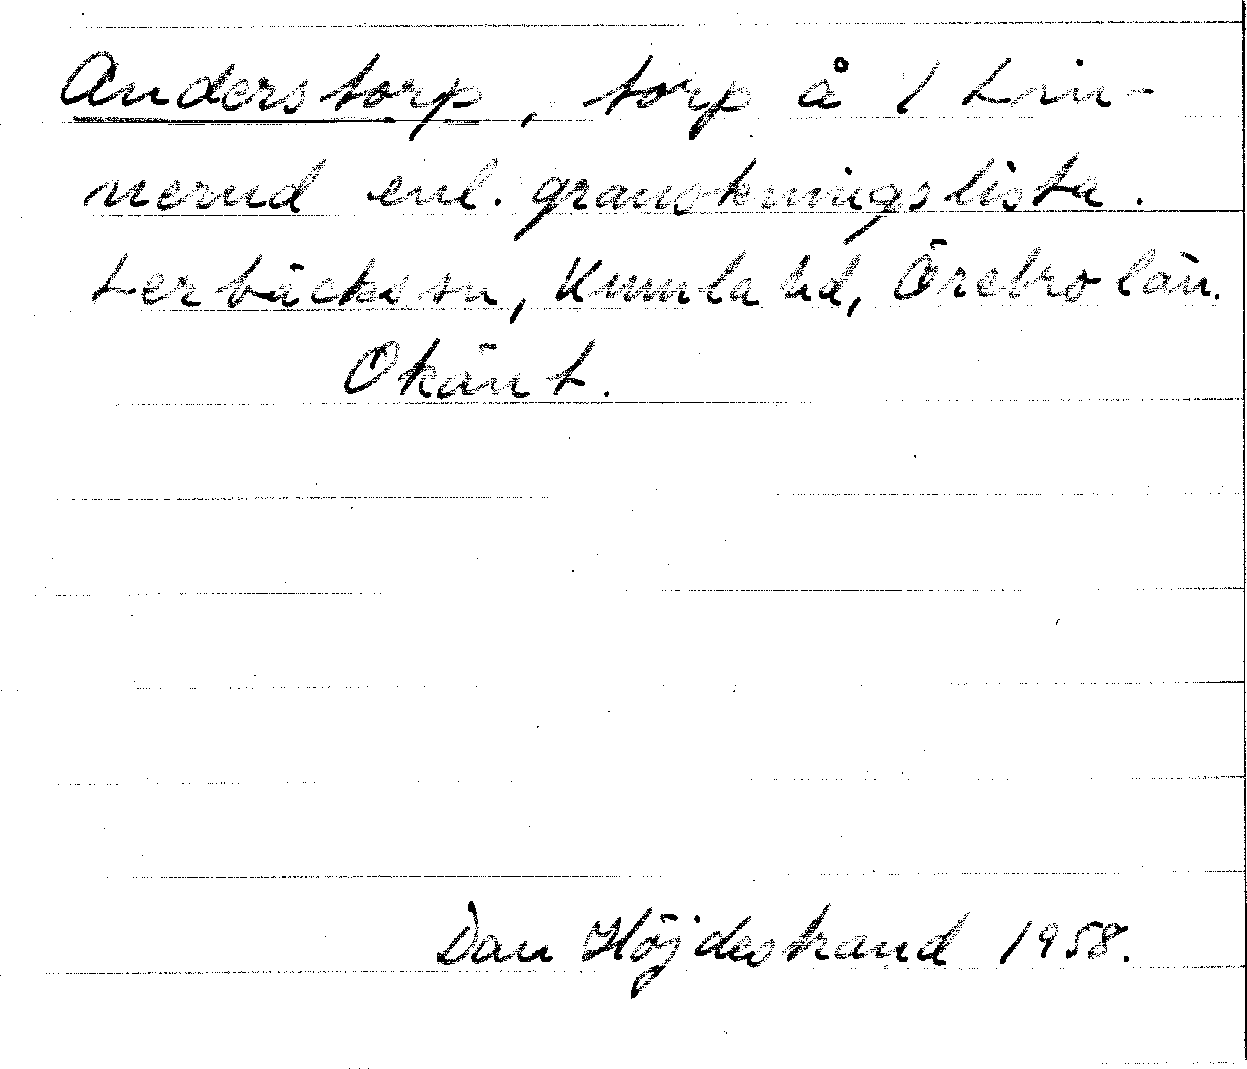 Anderstorp, torp å 1 Lin-
nerud enl. granskningslista.
Lerbäcks sn, Kumla hd, Örebro län.
Okänt.
Dan Höjdestrand 1958.